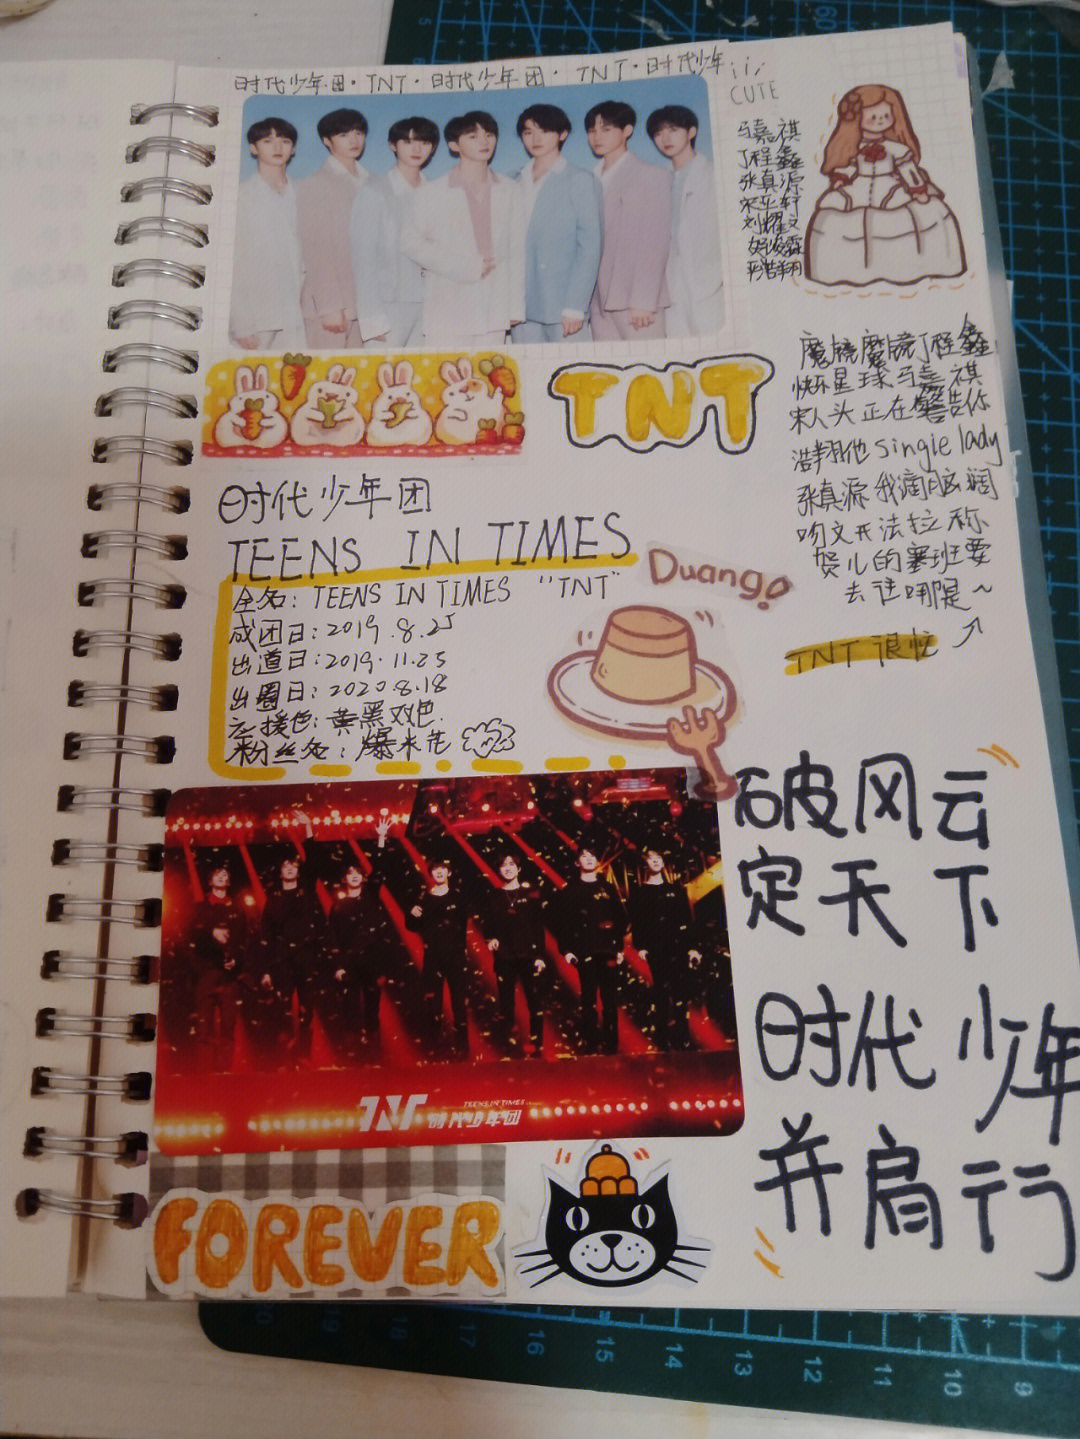 时代少年团·TNT·时代少年团·TNT·时代少年
CUTE
马嘉祺
丁程鑫
张真源
宋亚轩
刘耀文
贺峻霖
严浩翔
TNT
魔镜魔镜丁程鑫
快乐星球马嘉祺
宋人头正在警告你
浩翔他 single lady
张真源我滴
吻文开法拉称
贺儿的塞班要
去往哪是~
TNT 很忙
时代少年团
TEENS IN TIMES
全名: TEENS IN TIMES “TNT”
成团日:2019.8.25
出道日:2019.11.25
出圈日:2020.8.18
应援色:黄黑双色
粉丝名:爆米花
Duang
破风云
定天下
时代少年
并肩行
TNT
TEENS IN TIMES
时代少年团
FOREVER
60
20
19
18
17
16
15
14
13
12
11
10
9